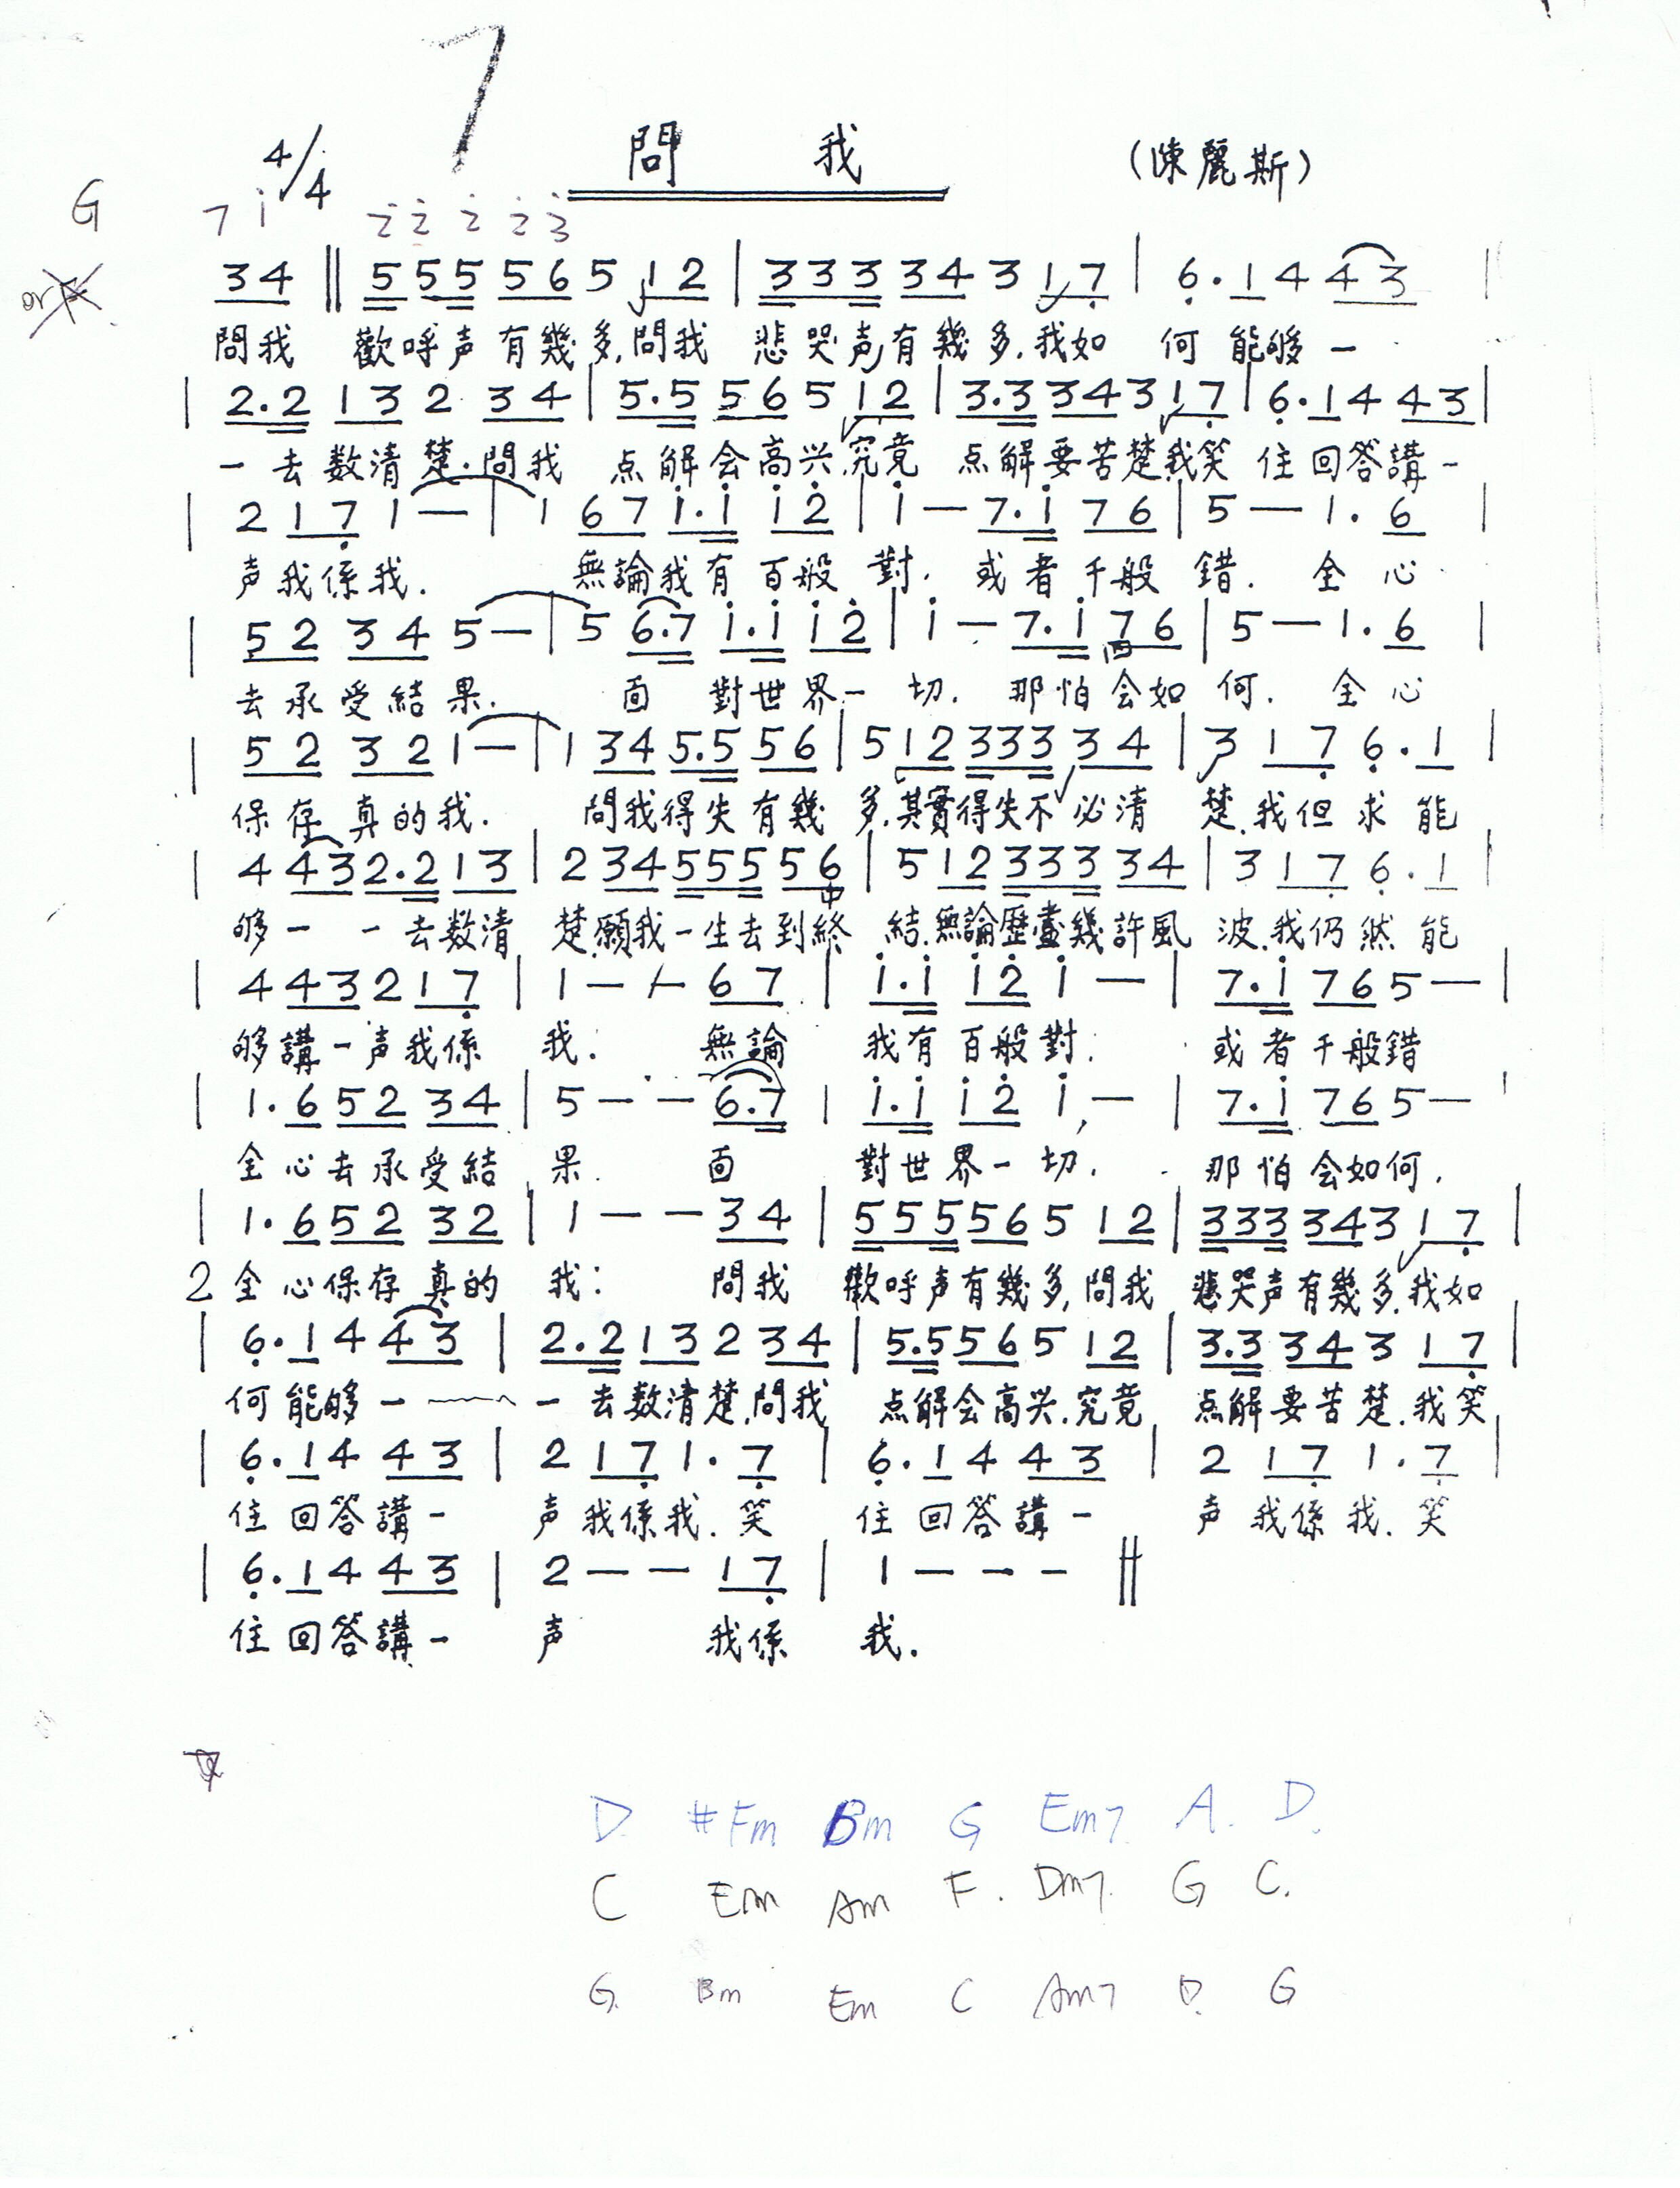 7
4/4 問 我 (陳麗斯)
G 7 i 2 2 2 2 3
or
34 || 555 56 5 12 | 333 34 3 17 | 6.1 4 43 |
問我 歡呼声有幾多,問我 悲哭声有幾多.我如 何能够一
| 2.2 13 2 34 | 5.5 56 5 12 | 3.3 34 3 17 | 6.1 4 43 |
一去数清楚.問我 点解会高兴.究竟 点解要苦楚.我笑 住回答講一
| 2 17 1 — | 1 67 i.i i2 | i — 7.i 76 | 5 — 1. 6 |
声我係我. 無論我有百般 對. 或者千般 錯. 全心
| 52 34 5 — | 5 6.7 i.i i2 | i — 7.i 76 | 5 — 1. 6 |
四
去承受結果. 面 對世界一 切. 那怕会如 何. 全心
| 52 32 1 — | 1 34 5.5 56 | 5 12 333 34 | 3 17 6.1 |
保存真的我. 問我得失有幾 多.其實得失不必清 楚.我但求能
| 4 43 2.2 13 | 2 34 555 56 | 5 12 333 34 | 3 17 6.1 |
中
够一 一去数清 楚.願我一生去到終 結.無論歷盡幾許風 波.我仍然能
| 4 43 2 17 | 1 — — 67 | i.i i2 i — | 7.i 76 5 — |
够講一声我係 我. 無論 我有百般對. 或者千般錯
| 1.6 52 34 | 5 — — 6.7 | i.i i2 i — | 7.i 76 5 — |
全心去承受結 果. 面 對世界一切. 那怕会如何.
| 1.6 52 32 | 1 — — 34 | 555 56 5 12 | 333 34 3 17 |
2 全心保存真的 我: 問我 歡呼声有幾多,問我 悲哭声有幾多.我如
| 6.1 4 43 | 2.2 13 2 34 | 5.5 56 5 12 | 3.3 34 3 17 |
何能够一 一去数清楚.問我 点解会高兴.究竟 点解要苦楚.我笑
| 6.1 4 43 | 2 17 1. 7 | 6.1 4 43 | 2 17 1. 7 |
住回答講一 声我係我.笑 住回答講一 声我係我.笑
| 6.1 4 43 | 2 — — 17 | 1 — — — ||
住回答講一 声 我係 我.
D #Fm Bm G Em7 A. D.
C Em Am F. Dm7. G C.
G Bm Em C Am7 D. G